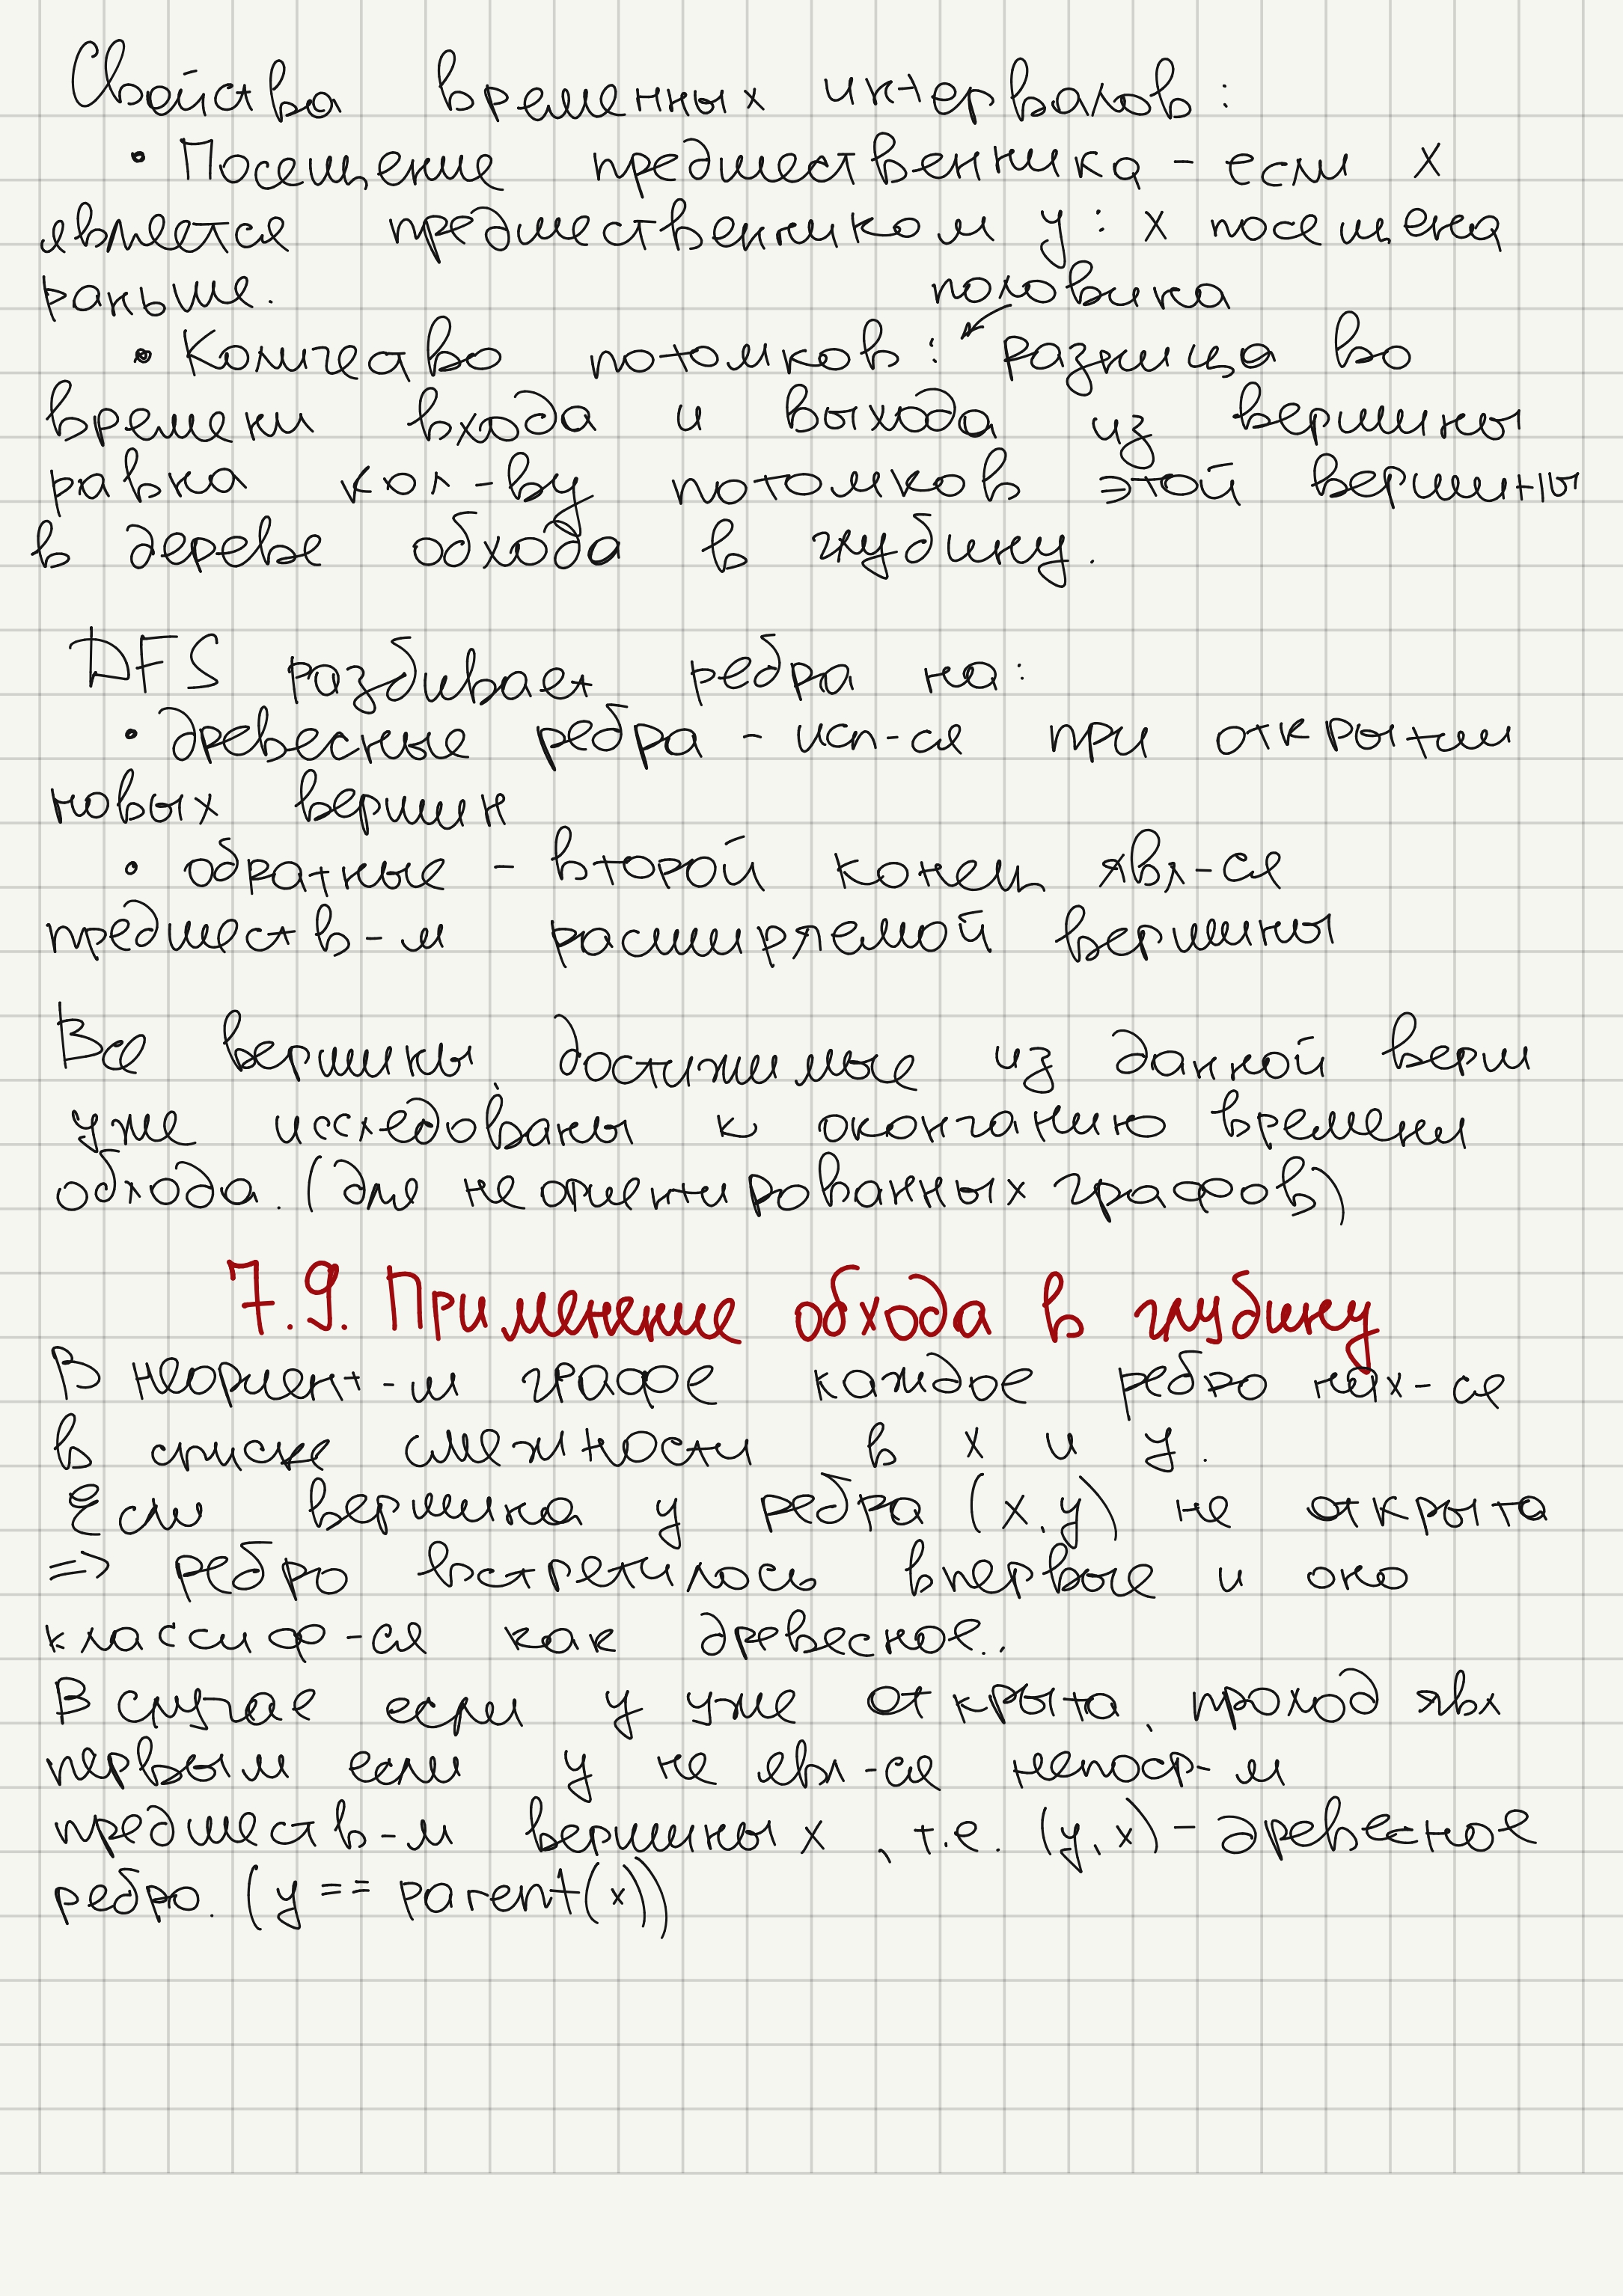 Свойства временных интервалов:
• Посещение предшественника - если x
является предшественником y: x посещена
раньше.
половина
• Количество потомков: разница во
времени входа и выхода из вершины
равна кол-ву потомков этой вершины
в дереве обхода в глубину.
DFS разбивает ребра на:
• древесные ребра - исп-ся при открытии
новых вершин
• обратные - второй конец явл-ся
предшеств-м расширяемой вершины
Все вершины, достижимые из данной верш
уже исследованы к окончанию времени
обхода. (для неориентированных графов)
7.9. Применение обхода в глубину
В неориент-м графе каждое ребро нах-ся
в списке смежности в x и y.
Если вершина y ребра (x,y) не открыта
=> ребро встретилось впервые и оно
классиф-ся как древесное..
В случае если y уже открыта, проход явл
первым если y не явл-ся непоср-м
предшеств-м вершины x, т.е. (y,x) - древесное
ребро. (y == parent(x))